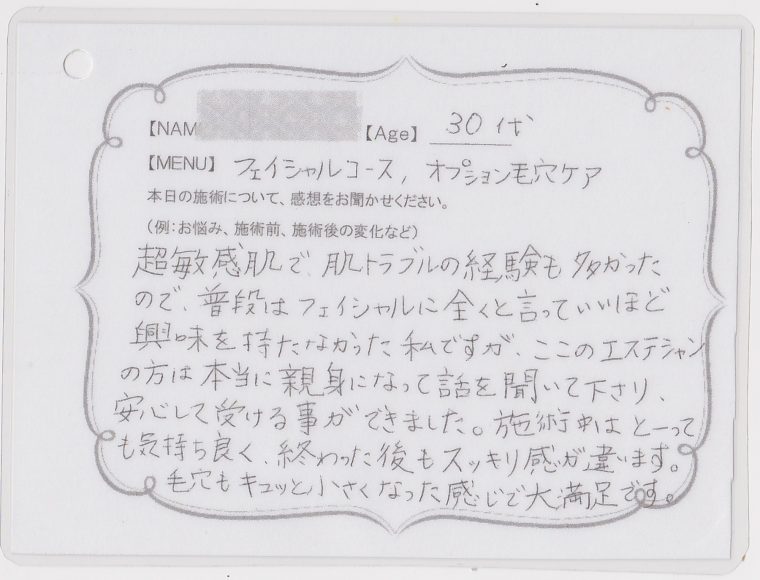 【NAM 【Age】 30代
【MENU】 フェイシャルコース, オプション毛穴ケア
本日の施術について、感想をお聞かせください。
(例:お悩み、施術前、施術後の変化など)
超敏感肌で、肌トラブルの経験も多かった
ので、普段はフェイシャルに全くと言っていいほど
興味を持たなかった私ですが、ここのエステシャン
の方は本当に親身になって話を聞いて下さり、
安心して受ける事ができました。施術中はとーって
も気持ち良く、終わった後もスッキリ感が違います。
毛穴もキュッと小さくなった感じで大満足です。